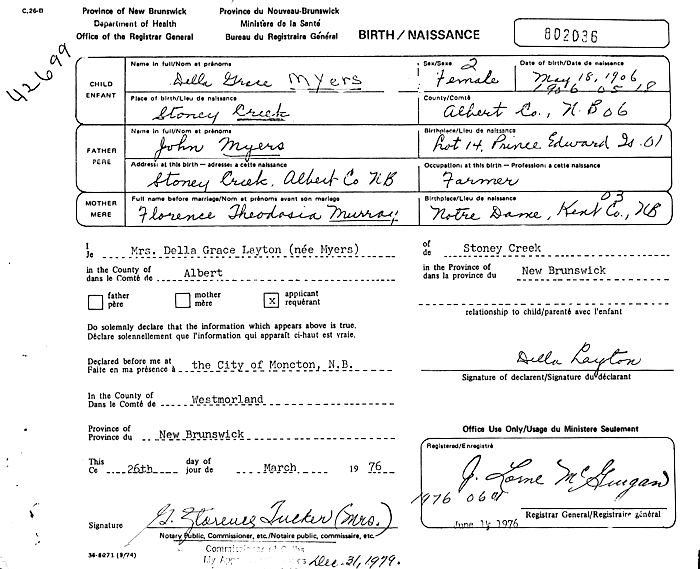 C.26-B
Province of New Brunswick Province du Nouveau-Brunswick
Department of Health Ministère de la Santé
Office of the Registrar General Bureau du Registraire Général BIRTH / NAISSANCE 802036
42699
CHILD
ENFANT
Name in full/Nom et prénoms
Della Grace Myers
Sex/Sexe 2
Female
Date of birth/Date de naissance
May 18, 1906
1906 05 18
Place of birth/Lieu de naissance
Stoney Creek
County/Comté
Albert Co., N.B 06
FATHER
PERE
Name in full/Nom et prénoms
John Myers
Birthplace/Lieu de naissance
Lot 14, Prince Edward Is. 01
Address: at this birth — adresse: a cette naissance
Stoney Creek, Albert Co NB
Occupation: at this birth — Profession: a cette naissance
Farmer
MOTHER
MERE
Full name before marriage/Nom et prénoms avant son mariage
Florence Theodosia Murray
Birthplace/Lieu de naissance
03
Notre Dame, Kent Co., NB
I
Je Mrs. Della Grace Layton (née Myers)
of
de Stoney Creek
in the County of
dans le Comté de Albert
in the Province of
dans la province du New Brunswick
father
père
mother
mère
x applicant
requérant
relationship to child/parenté avec l'enfant
Do solemnly declare that the information which appears above is true.
Déclare solennellement que l'information qui apparaît ci-haut est vraie.
Declared before me at
Faite en ma présence à the City of Moncton, N.B.
Della Layton
Signature of declarent/Signature du déclarant
In the County of
Dans le Comté de Westmorland
Province of
Province du New Brunswick
Office Use Only/Usage du Ministere Seulement
Registered/Enregistré
This
Ce 26th day of
jour de March 1976
J. Lorne McGuigan
1976 06
Registrar General/Registraire général
June 14 1976
Signature G. Florence Tucker (Mrs.)
Notary Public, Commissioner, etc./Notaire public, commissaire, etc.
34-8271 (9/74)
Dec. 31, 1979.